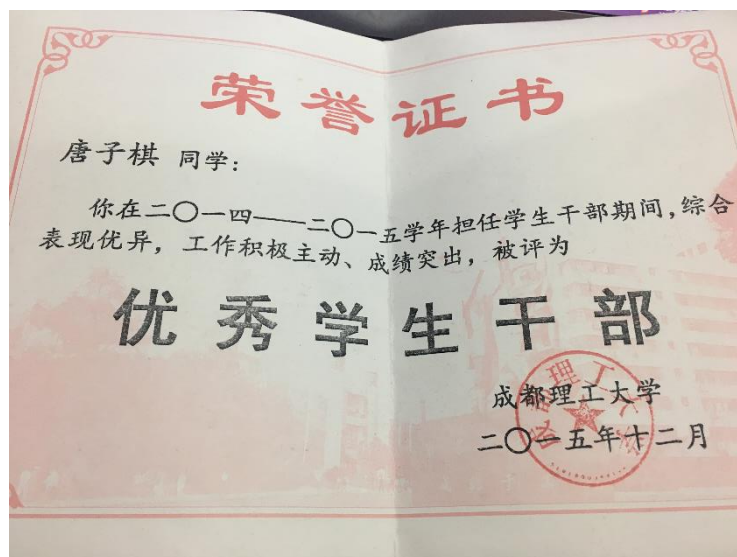 荣誉证书
唐子棋 同学：
你在二〇一四——二〇一五学年担任学生干部期间，综合
表现优异，工作积极主动、成绩突出，被评为
优秀学生干部
成都理工大学
二〇一五年十二月
成都理工大学